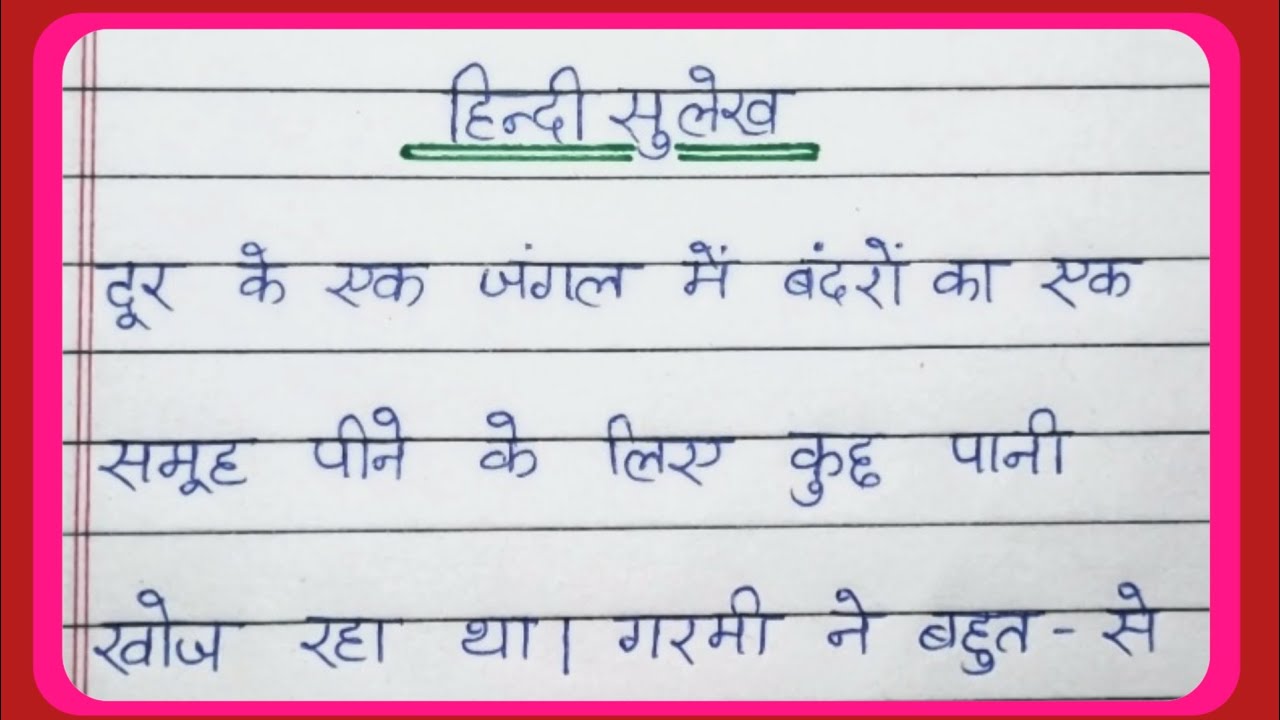 हिन्दी सुलेख
दूर के एक जंगल में बंदरों का एक
समूह पीने के लिए कुछ पानी
खोज रहा था। गरमी ने बहुत - से